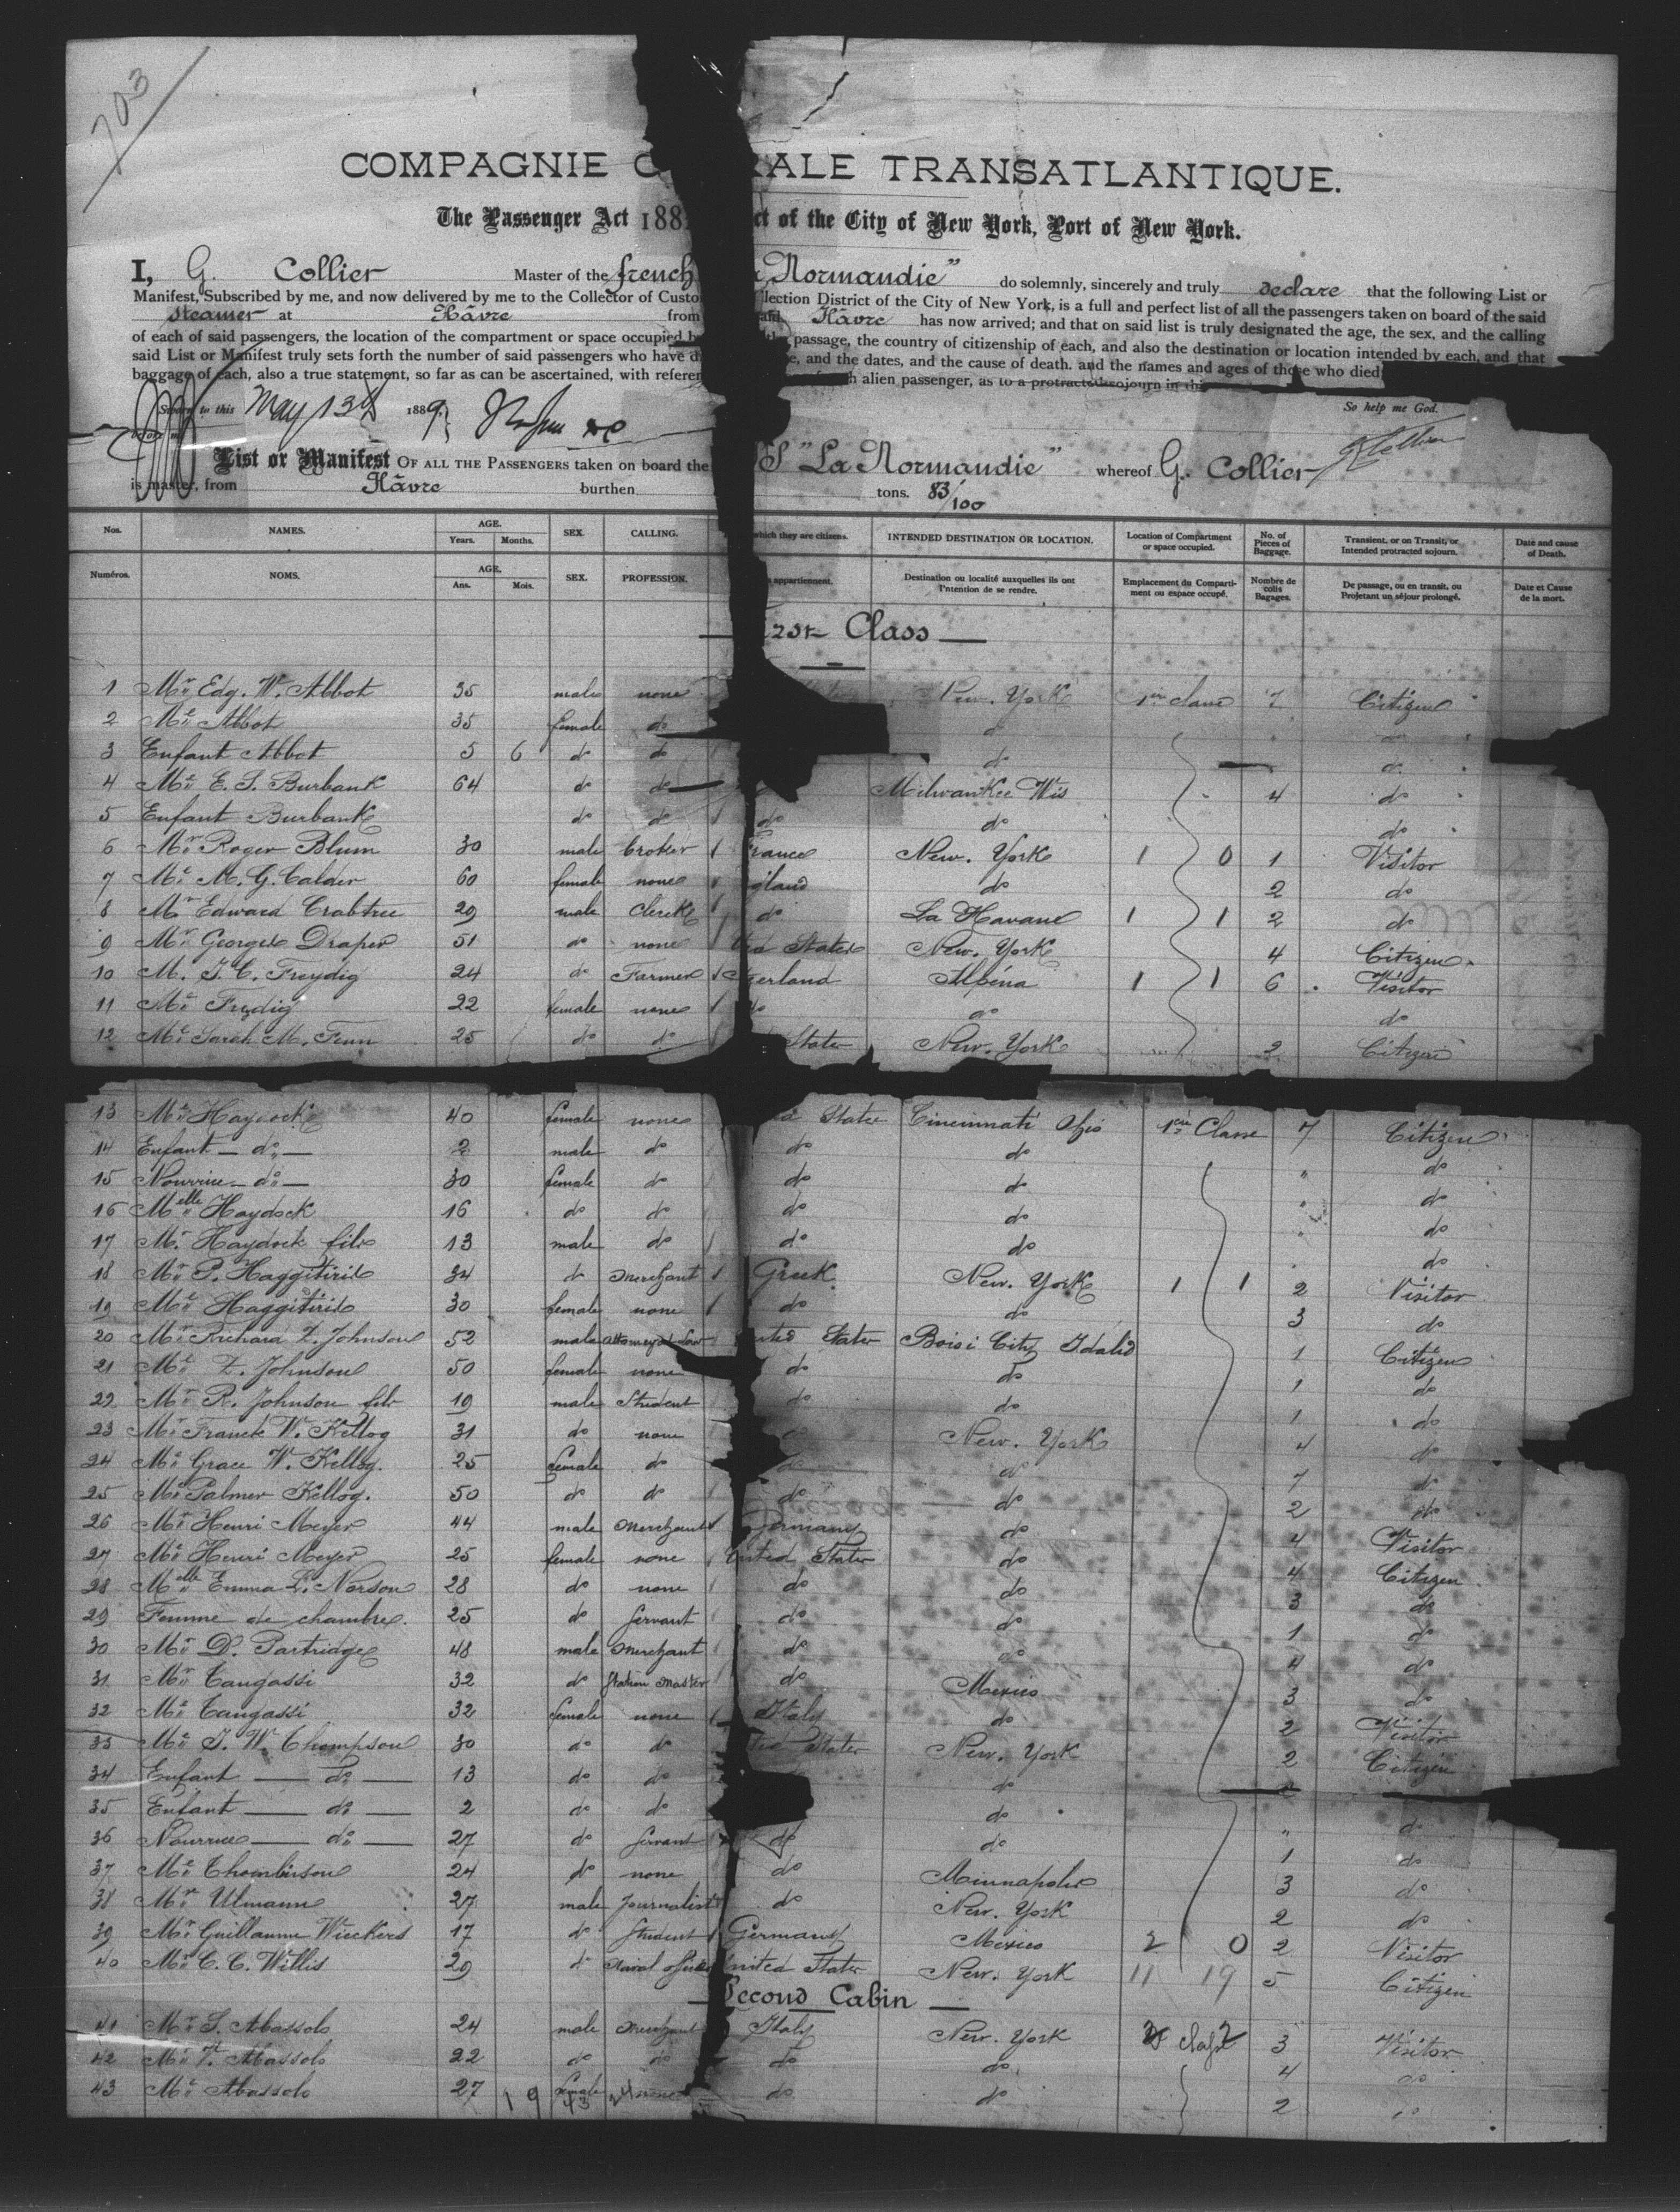 703
COMPAGNIE G RALE TRANSATLANTIQUE.
The Passenger Act 188 ct of the City of New York, Port of New York.
I, G. Collier Master of the french a Normandie" do solemnly, sincerely and truly declare that the following List or
Manifest, Subscribed by me, and now delivered by me to the Collector of Custo llection District of the City of New York, is a full and perfect list of all the passengers taken on board of the said
steamer at Hâvre from said Hâvre has now arrived; and that on said list is truly designated the age, the sex, and the calling
of each of said passengers, the location of the compartment or space occupied b the passage, the country of citizenship of each, and also the destination or location intended by each, and that
said List or Manifest truly sets forth the number of said passengers who have d e, and the dates, and the cause of death. and the names and ages of those who died
baggage of each, also a true statement, so far as can be ascertained, with referen h alien passenger, as to a protracted sojourn in this
So help me God.
Sworn to this May 13th 1889
List or Manifest OF ALL THE PASSENGERS taken on board the S "La Normandie" whereof G. Collier
is master, from Hâvre burthen tons. 83/100
Nos. NAMES. AGE. Years. Months. SEX. CALLING. which they are citizens. INTENDED DESTINATION OR LOCATION. Location of Compartment or space occupied. No. of Pieces of Baggage. Transient, or on Transit, or Intended protracted sojourn. Date and cause of Death.
Numéros. NOMS. AGE. Ans. Mois. SEX. PROFESSION. appartiennent. Destination ou localité auxquelles ils ont l'intention de se rendre. Emplacement du Compartiment ou espace occupé. Nombre de colis Bagages. De passage, ou en transit, ou Projetant un séjour prolongé. Date et Cause de la mort.
irst Class
1 Mr. Edg. W. Abbot 35 male none New. York 1re classe 7 Citizen
2 Me. Abbot 35 female do do do
3 Enfant Abbot 5 6 do do do do
4 Me. E. S. Burbank 64 do do Milwankee Wis 4 do
5 Enfant Burbank do do do do do
6 Mr. Roger Blum 30 male broker rance New. York 1 0 1 Visitor
7 Me. M. G. Calder 60 female none gland do 2 do
8 Mr. Edward Crabtree 29 male Clerck do La Havane 1 1 2 do
9 Mr. Georges Draper 51 do none ted States New. York 4 Citizen
10 M. J. C. Freydig 24 do Farmer erland Alpéna 1 1 6 Visitor
11 Me. Fredig 22 female none do do do
12 Me. Sarah M. Fenn 25 do do States New. York 2 Citizen
13 Me. Haydock 40 female none ed States Cincinnati Ohio 1ère Classe 7 Citizen
14 Enfant — do — 2 male do do do " do
15 Nourrice — do — 30 female do do do " do
16 Melle Haydock 16 do do do do " do
17 Mr. Haydock fils 13 male do do do " do
18 Mr. P. Haggitiris 34 do merchant Greek New. York 1 1 2 Visitor
19 Me. Haggitiris 30 female none do do 3 do
20 Mr. Richard Z. Johnson 52 male attorney at law nited States Boisi City Idaho 1 Citizen
21 Me. Z. Johnson 50 female none do do 1 do
22 Mr. R. Johnson fils 19 male Student do do 1 do
23 Mr. Franck W. Kellog 31 do none do New. York 4 do
24 Me. Grace W. Kellog. 25 female do do do 7 do
25 Me. Palmer Kellog. 50 do do do do 2 do
26 Mr. Henri Meyer 44 male merchant Germany do 4 Visitor
27 Me. Henri Meyer 25 female none United States do 4 Citizen
28 Melle Emma L. Norson 28 do none do do 3 do
29 Femme de chambre. 25 do servant do do 1 do
30 Mr. D. Partridge 48 male merchant do do 4 do
31 Mr. Tangassi 32 do Station master do Mexico 3 do
32 Me. Tangassi 32 female none Italy do 2 Visitor
33 Me. J. W. Thompson 30 do do ted States New. York 2 Citizen
34 Enfant — do — 13 do do do
35 Enfant — do — 2 do do do " do
36 Nourrice — do — 27 do servant do do 1 do
37 Me. Thombinson 24 do none do Minnapolis 3 do
38 Mr. Ulmann 27 male journalist do New. York 2 do
39 Mr. Guillaume Wieckers 17 do Student Germany Mexico 2 0 2 Visitor
40 Mr. C. C. Willis 29 do Naval officer United States New. York 11 19 5 Citizen
Second Cabin
41 Mr. S. Abassolo 24 male merchant Italy New. York 2d class 3 Visitor
42 Mr. Abassolo 22 do do do do 4 do
43 Me. Abassolo 27 female none do do 2 do
19 43 24